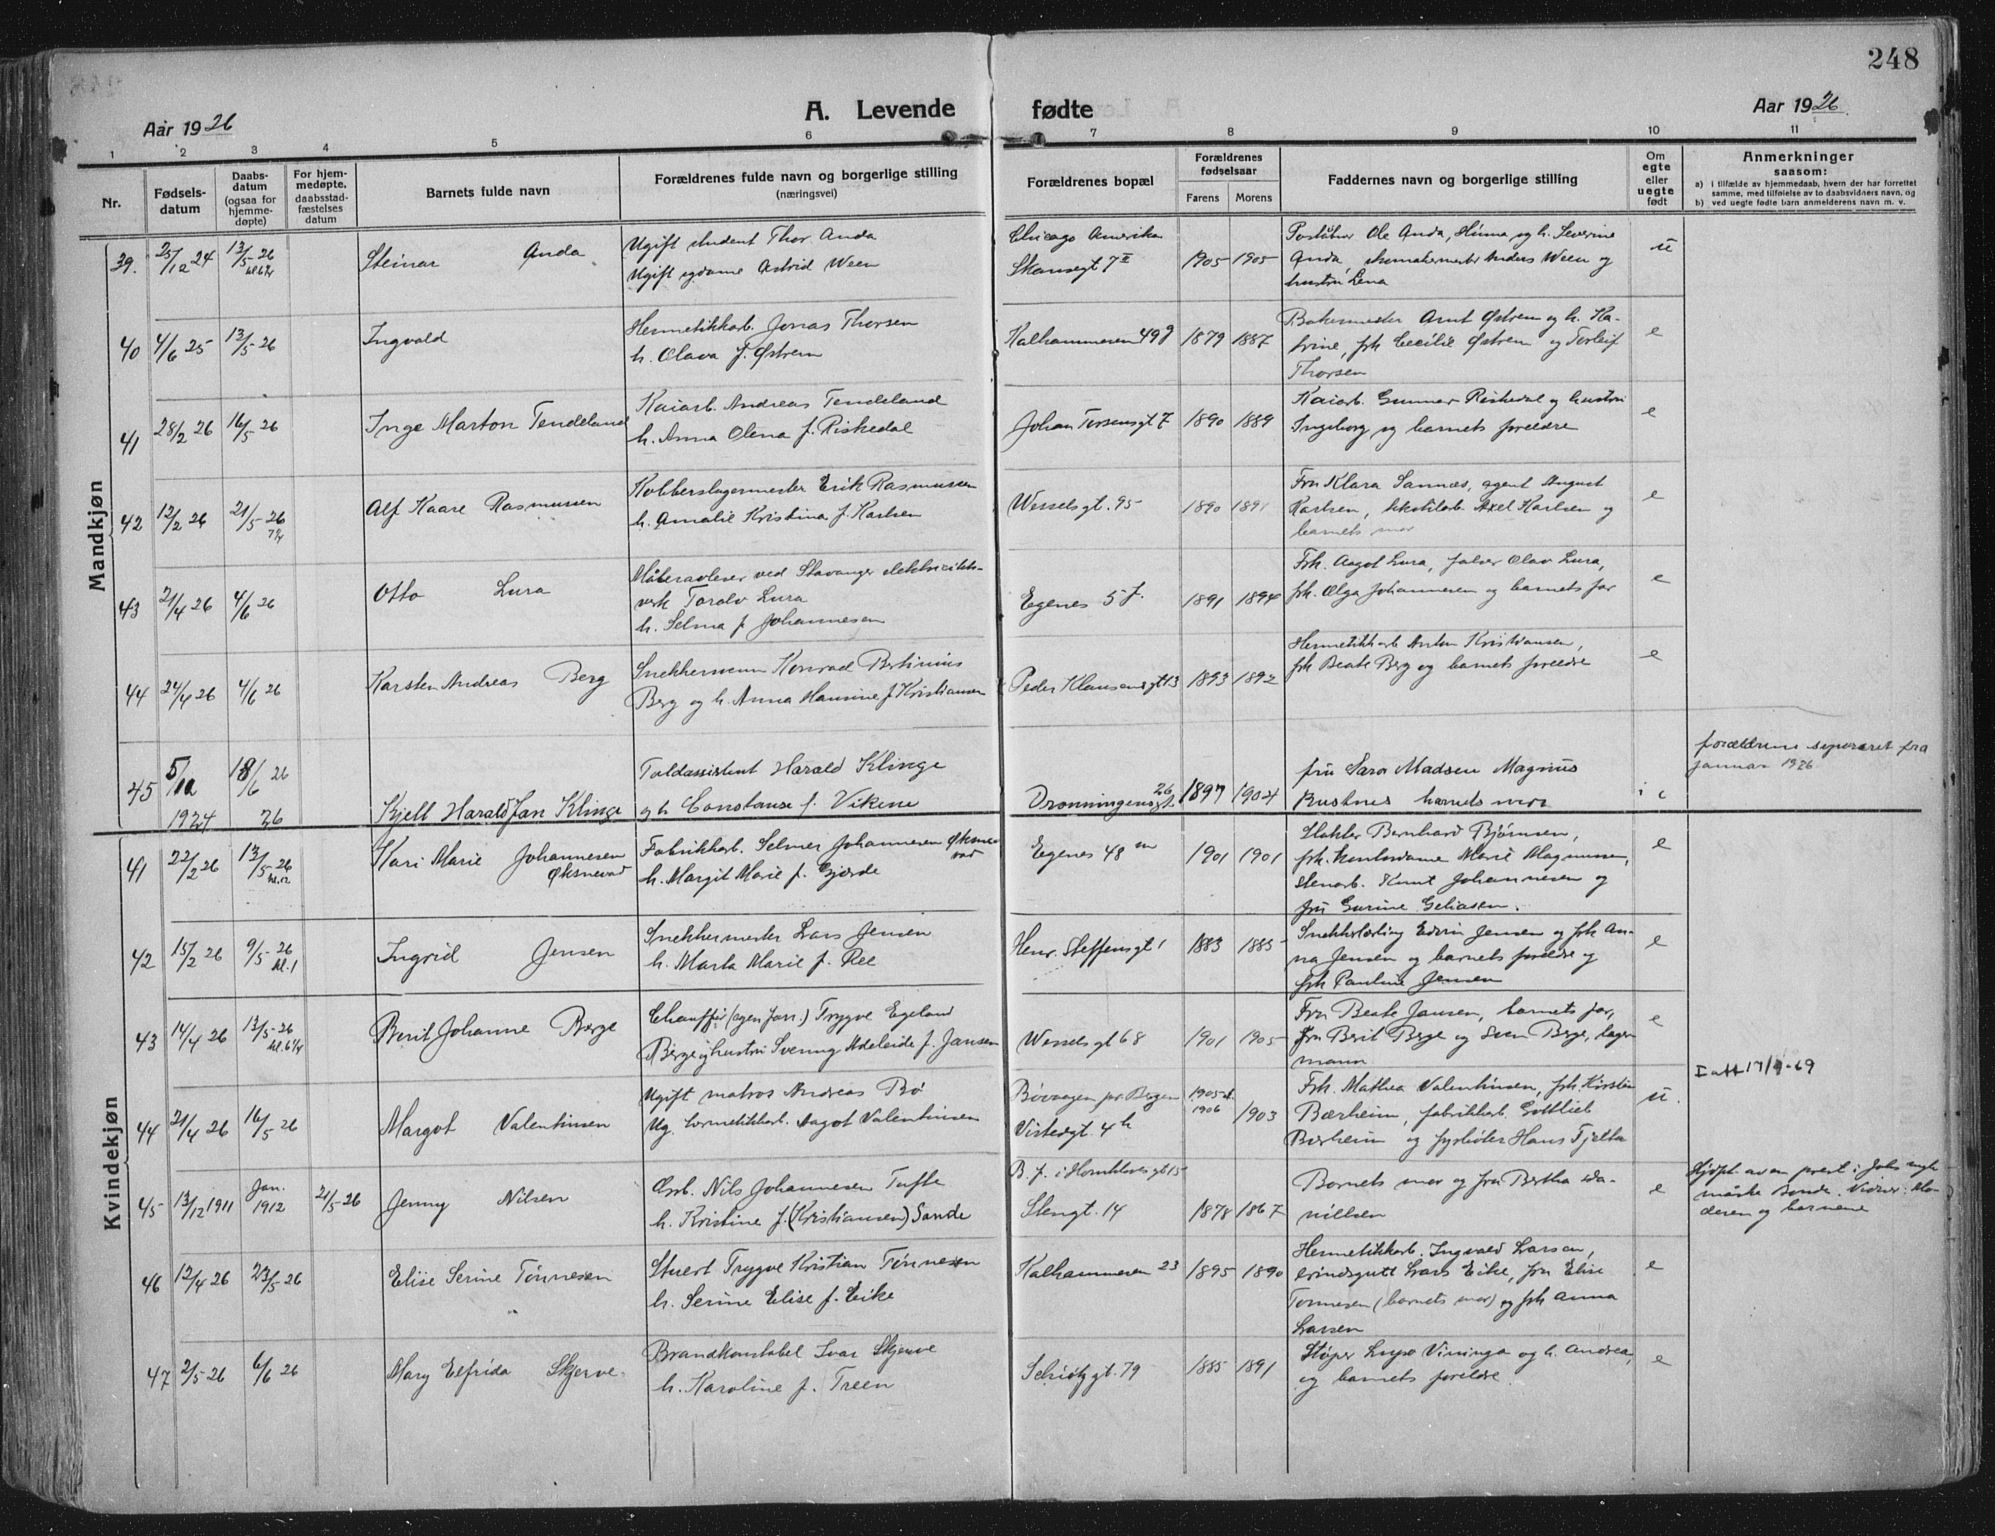 248
Aar 1926
A. Levende fødte
Aar 1926
1 2 3 4 5 6 7 8 9 10 11
Nr.
Fødsels-
datum
Daabs-
datum
(ogsaa for
hjemme-
døpte)
For hjem-
medøpte,
daabsstad-
fæstelses
datum
Barnets fulde navn
Forældrenes fulde navn og borgerlige stilling
(næringsvei)
Forældrenes bopæl
Forældrenes
fødselsaar
Farens Morens
Faddernes navn og borgerlige stilling
Om
egte
eller
uegte
født
Anmerkninger
saasom:
a) i tilfælde av hjemmedaab, hvem der har forrettet
samme, med tilføielse av to daabsvidners navn, og
b) ved uegte fødte barn anmelderens navn m. v.
Mandkjøn
39. 25/12 24 13/5 26
Steinar Anda
Ugift student Thor. Anda
Ugift sydame Astrid Ween
Chicago Amerika
Skansegt 7 II
1905 1905
Ole Anda, Hinna og h. Severine
Anda, Anders Ween og
hustru Lena
u
40 4/6 25 13/5 26
Ingvald
Hermetikkarb. Jonas Thorsen
h. Olava f. Østrem
Kalhammeren 49
1879 1887
Bakermester Arnt Østrem og h. Ka-
trine, frk Cecilie Østrem og Torleif
Thorsen
e
41 28/2 26 16/5 26
Inge Marton Tendeland
Kaiarb. Andreas Tendeland
h. Anna Olena f. Riskedal
Johan Torsensgt 7
1890 1889
Kaiarb. Gunnar Riskedal og hustru
Ingeborg og barnets foreldre
e
42 12/2 26 21/5 26
7 1/4
Alf Kaare Rasmussen
Kobberslagermester Erik Rasmussen
h. Amalie Kristina f. Karlsen
Wesselsgt. 95
1890 1891
Fru Klara Sannes, agent August
Karlsen, Axel Karlsen og
barnets mor
e
43 21/4 26 4/6 26
Otto Lura
Måleravleser ved Stavanger elektricitets-
verk Toralv Lura
h. Selma f. Johannesen
Egenes 5 f.
1891 1894
Frk. Aagot Lura, Olav Lura,
frk. Olga Johannesen og barnets far
e
44 24/4 26 4/6 26
Karsten Andreas Berg
Snekkersvenn Konrad Bertinius
Berg og h. Anna Hansine f. Kristiansen
Peder Klausensgt 13
1893 1892
Hermetikkarb Anton Kristiansen,
frk Beate Berg og barnets foreldre
e
45 5/12 1924 18/6 26
26
Kjell Harald Jan Klinge
Toldassistent Harald Klinge
og h Constanse f. Vikene
Dronningensgt. 26
1897 1904
fru Sara Madsen Magnus
Bustnes barnets mor
forældrene separeret fra
januar 1926
Kvindekjøn
41 22/2 26 13/5 26
kl. 12
Kari Marie Johannesen
Øksnevad
Fabrikkarb. Selmer Johannesen Øksne-
vad
h. Margit Marie f. Gjerde
Egenes 48 m
1901 1901
Bernhard Bjørnsen,
frk. kontordame Marie Magnussen,
stenarb. Knut Johannesen og
fru Gurine Geliasen.
e
42 15/2 26 9/5 26
kl. 1
Ingrid Jensen
Snekkermester Lars Jensen
h. Marta Marie f. Ree
Henr. Steffensgt 1
1883 1885
Snekkerlærling Edvin Jensen og frk An-
na Jensen og barnets foreldre og
frk Pauline Jensen
e
43 14/4 26 13/5 26
kl. 6 1/4
Berit Johanne Berge
Chauffør Trygve Egeland
Berge og hustru Svenny Adelaide f. Jansen
Wesselsgt 68
1901 1905
Fru Beate Jansen, barnets far,
fru Berit Berge og Sven Berge, lager-
mann
e
44 21/4 26 16/5 26
Margot Valentinsen
Ugift matros Andreas Bø
Ug. hermetikkarb. Aagot Valentinsen
Bøvaagen pr Bergen
Vistesgt. 4 h
1905 el.
1906
1903
Frk. Mathea Valentinsen, frk. Kirsten
Bærheim, fabrikkarb. Gottlieb
Bærheim og fyrbøter Hans Fjelta
u.
45 13/12 1911 Jan. 1912 21/5-26
Jenny Nilsen
Nils Johannesen Tufte
h. Kristine f. (Kristiansen) Sande
Stengt. 14
1878 1867
Barnets mor og fru Bertha Da-
nielsen
e
46 12/4 26 23/5 26
Elise Serine Tønnesen
Stuert Trygve Kristian Tønnesen
h. Serine Elise f. Eike
Kalhammeren 23
1895 1890
Hermetikkarb. Ingvald Larsen,
erindsgutt Lars Eike, fru Elise
Tønnesen (barnets mor) og frk Anna
Larsen
e
47 2/5 26 6/6 26
Mary Elfrida Skjerve.
Brandkonstabel Ivar Skjerve
h. Karoline f. Treen
Schiøtzgt. 79
1885 1891
Støper Vininga og h. Andrea,
og barnets foreldre
e